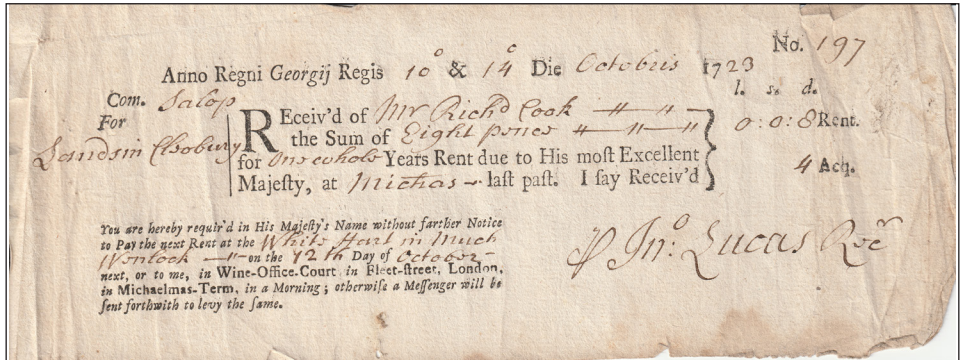 No. 197
Anno Regni Georgij Regis 10° & 14° Die Octobris 1723
l. s. d.
Com. Salop
For
Lands in Cleobury
REceiv'd of Mr Richd Cook
the Sum of Eight pence
for One whole Years Rent due to His most Excellent
Majesty, at Michas last past. I say Receiv'd
0:0:8 Rent.
4 Acq.
You are hereby requir'd in His Majesty's Name without farther Notice
to Pay the next Rent at the White Hart in Much
Wenlock on the 12th Day of October
next, or to me, in Wine-Office-Court in Fleet-street, London,
in Michaelmas-Term, in a Morning; otherwise a Messenger will be
sent forthwith to levy the same.
Jno. Lucas Recr